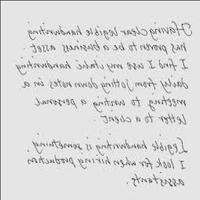 Having clear legible handwriting
has proven to be a business asset.
I find I use my italic handwriting
daily from jotting down notes in a
meeting to writing a personal
letter to a client.
Legible handwriting is something
I look for when hiring production
assistants.